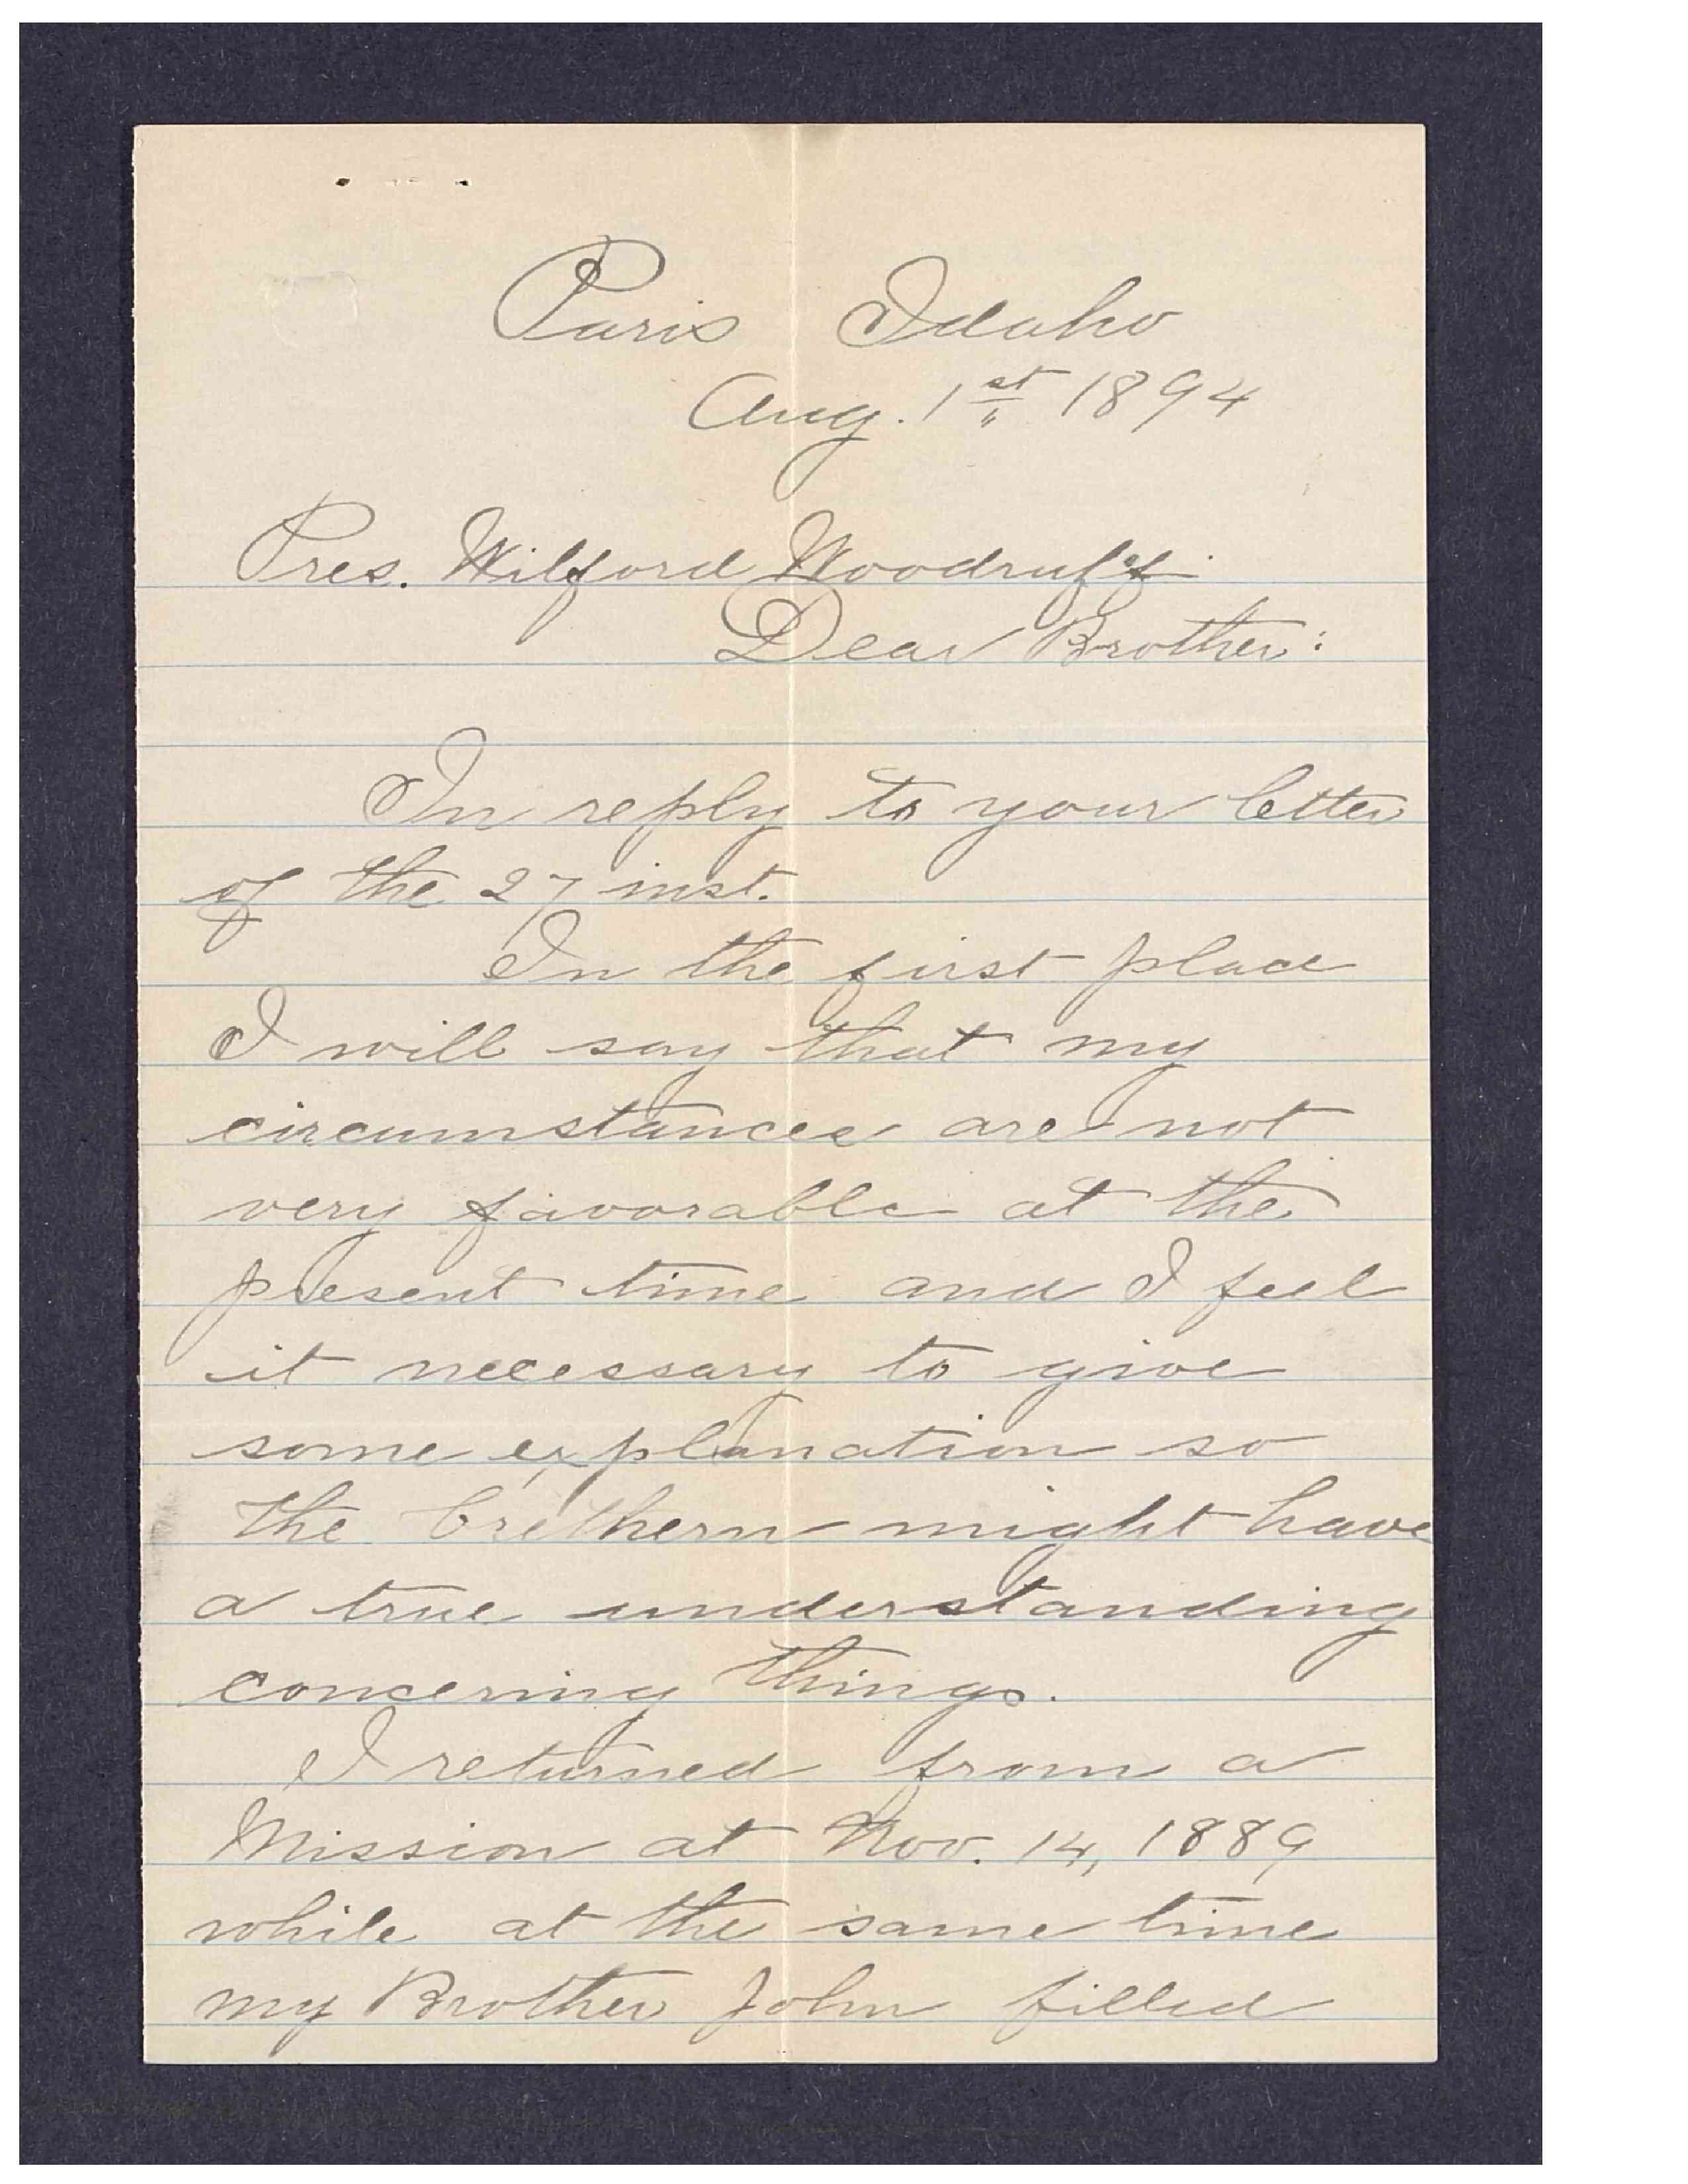 Paris Idaho
Aug. 1st 1894
Pres. Wilford Woodruff.
Dear Brother:
In reply to your letter
of the 27 inst.
In the first place
I will say that my
circumstances are not
very favorable at the
present time and I feel
it necessary to give
some explanation so
the brethern might have
a true understanding
concering things.
I returned from a
Mission at Nov. 14, 1889
while at the same time
my Brother John filled